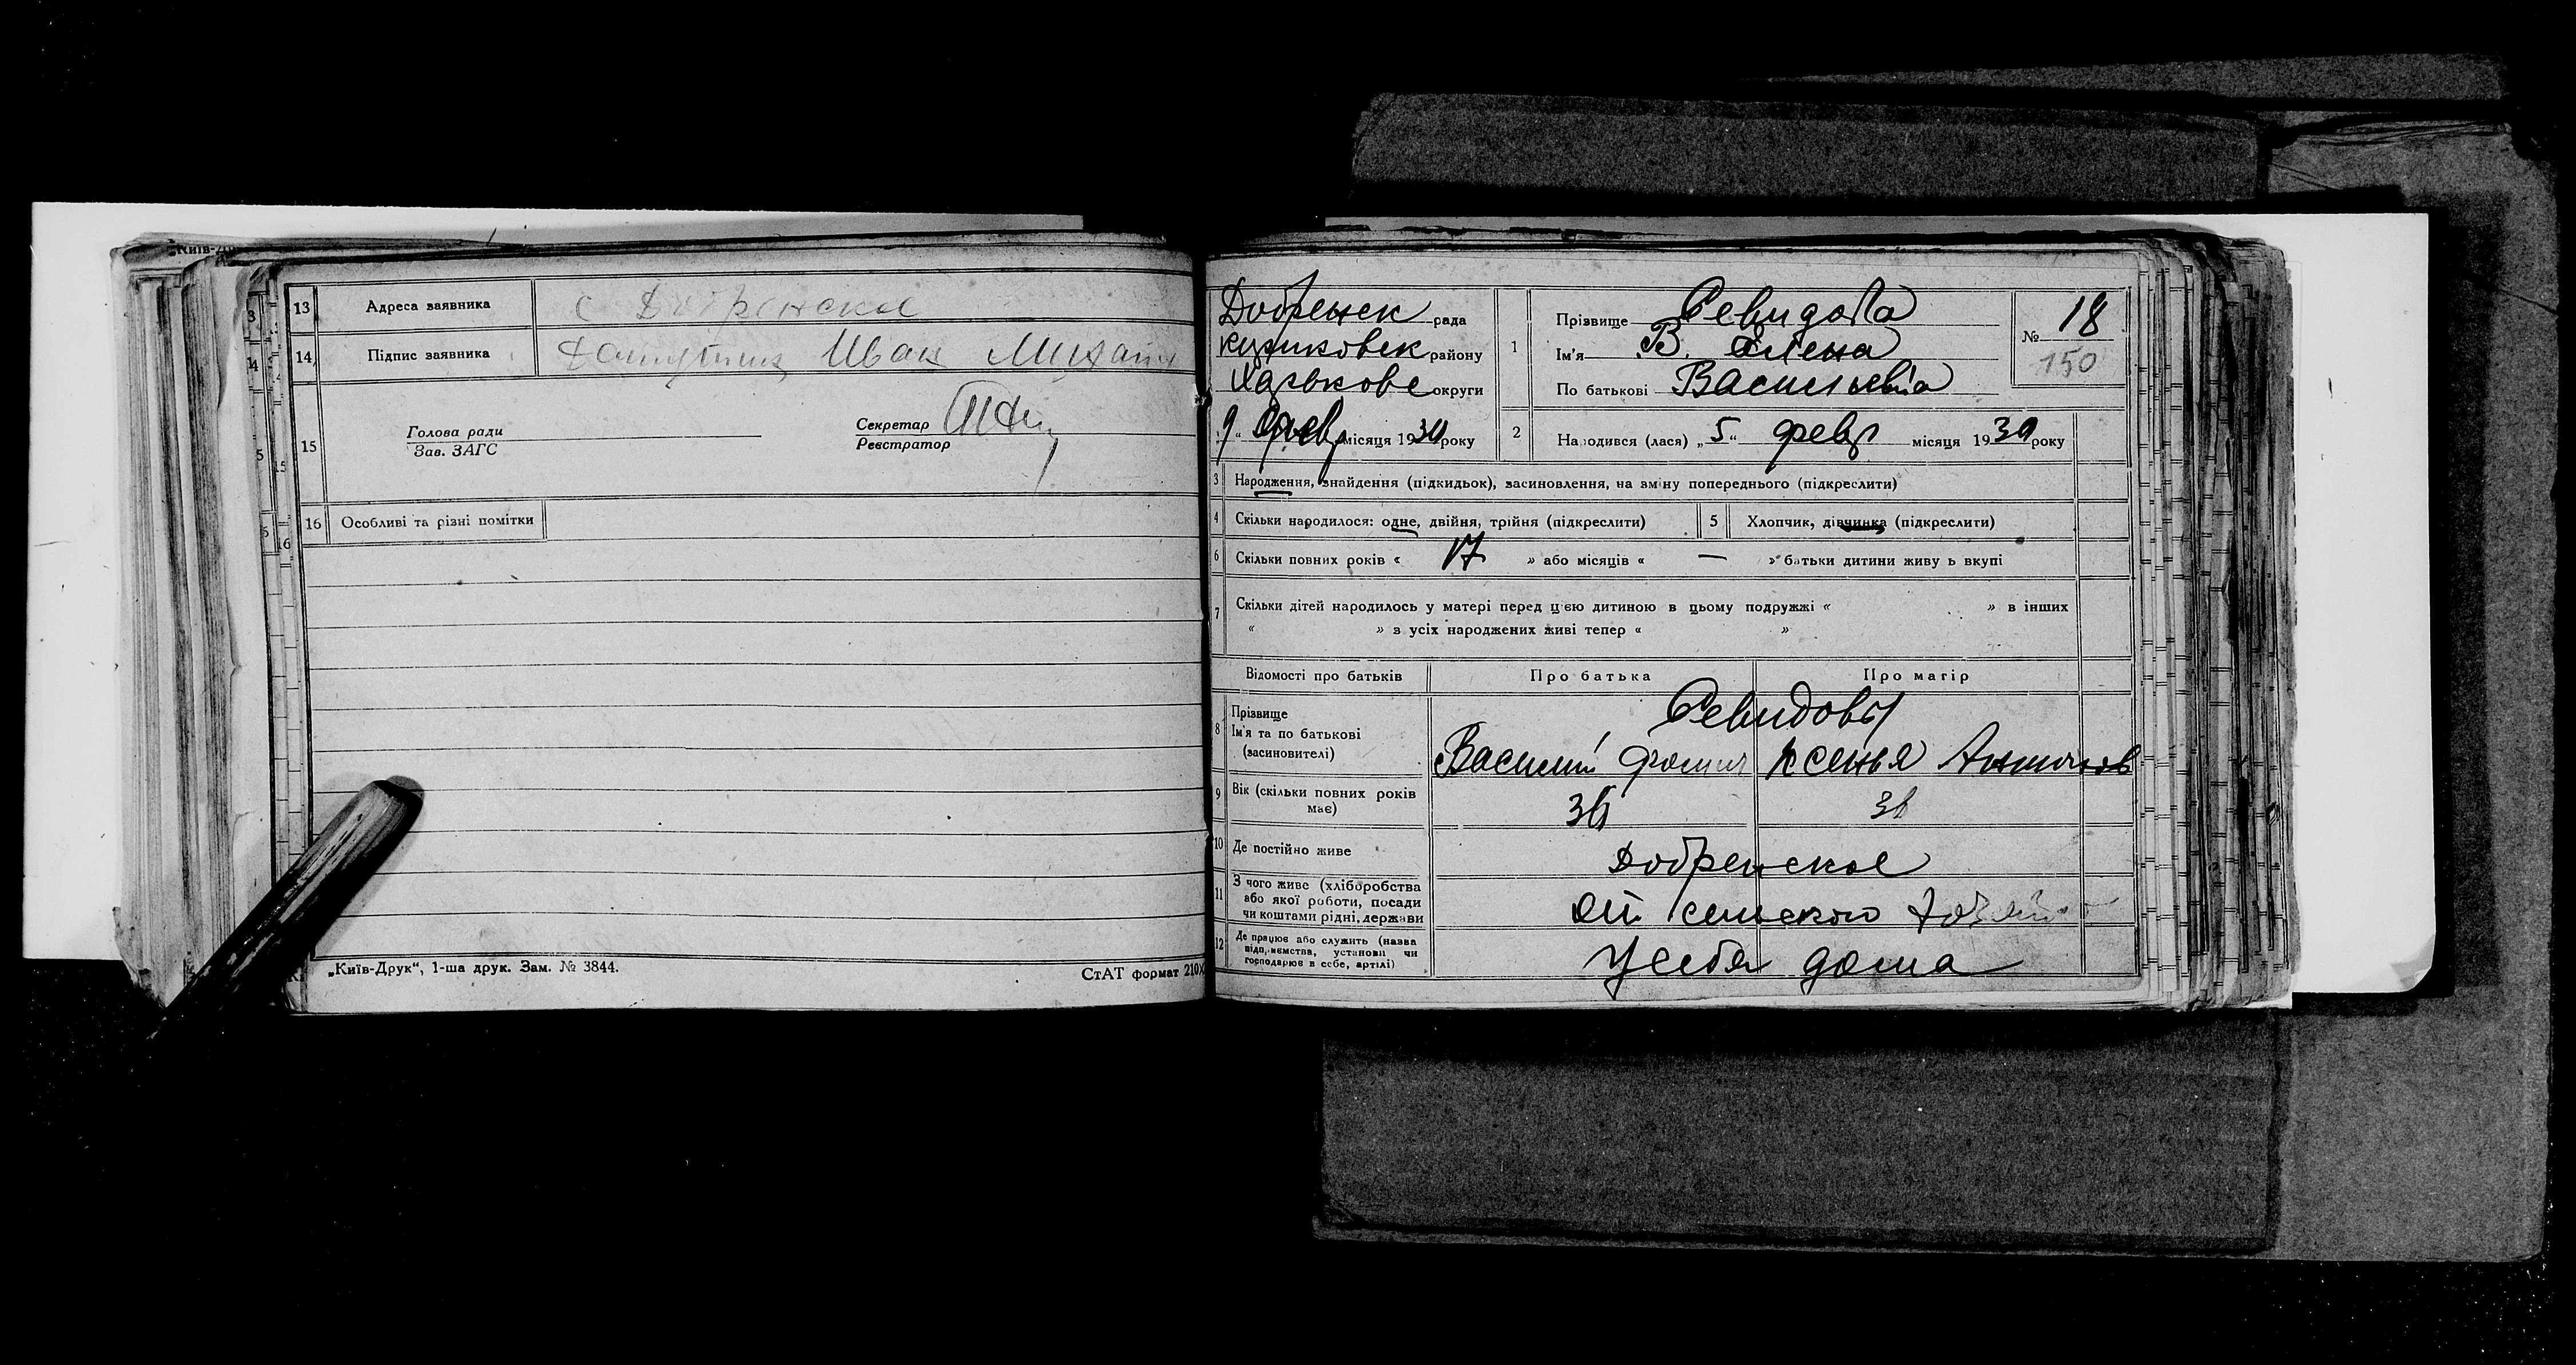 13 Адреса заявника с Добренское
14 Підпис заявника Иван Михайл
15 Голова ради
Зав. ЗАГС
Секретар
Реєстратор
16 Особливі та різні помітки
„Київ-Друк“, 1-ша друк. Зам. № 3844.
СтАТ формат 210
Добренск рада
району
Харькове округи
9 февр місяця 1930 року
1 Прізвище Севидова
Ім'я В. Елена
По батькові Васильевна
№ 18
150
2 Народився (лася) „5“ февр місяця 1930 року
3 Народження, знайдення (підкидьок), засиновлення, на зміну попереднього (підкреслити)
4 Скільки народилося: одне, двійня, трійня (підкреслити)
5 Хлопчик, дівчинка (підкреслити)
6 Скільки повних років « 17 » або місяців « — » батьки дитини живу ь вкупі
7 Скільки дітей народилось у матері перед цією дитиною в цьому подружжі « » в інших
« » з усіх народжених живі тепер « »
Відомості про батьків Про батька Про матір
8 Прізвище
Ім'я та по батькові
(засиновителі)
Севидовы
Василий Фомич Ксенья
9 Вік (скільки повних років має) 36
10 Де постійно живе Добренское
11 З чого живе (хліборобства
або якої роботи, посади
чи коштами рідні, держави
От сельского
12 Де працює або служить (назва
підприємства, установи чи
господарює в себе, артілі)
У себя дома